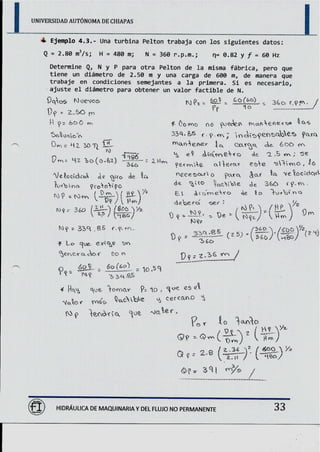 UNIVERSIDAD AUTÓNOMA DE CHIAPAS
Ejemplo 4.3.- Una turbina Pelton trabaja con los siguientes datos:
Q = 2.80 m³/s; H = 480 m; N = 360 r.p.m.; η= 0.82 y f = 60 Hz
Determine Q, N y P para otra Pelton de la misma fábrica, pero que
tiene un diámetro de 2.50 m y una carga de 600 m, de manera que
trabaje en condiciones semejantes a la primera. Si es necesario,
ajuste el diámetro para obtener un valor factible de N.
Datos Nuevos
Dp = 2.50 m
Hp = 600 m
Solución
Dm = 42.30 η √H / N
Dm = 42.30 (0.82) √480 / 360 = 2.11m
Velocidad de giro de la
turbina prototipo
NP = Nm (Dm / Dp) (Hp / Hm)^½
NP = 360 (2.11 / 2.5) (600 / 480)^½
NP = 339.85 r.p.m.
* Lo que exige un
generador con
PP = 60f / NP = 60(60) / 339.85 = 10.59
* Hay que tomar P= 10, que es el
valor más factible y cercano y
Np tendría que valer.
NPc = 60f / Pr = 60(60) / 10 = 360 r.p.m.
* Como no pueden mantenerse las
339.85 r.p.m; indispensables para
mantener la carga de 600 m
y el diámetro de 2.5 m; se
permite alterar este último, lo
necesario para dar la velocidad
de giro factible de 360 r.p.m.
El diámetro de la turbina
deberá ser:
Dp = 2.36 m
Por lo tanto
QP = Qm (Dp / Dm)² (Hp / Hm)^½
QP = 2.8 (2.36 / 2.11)² (600 / 480)^½
QP = 3.91 m³/s
HIDRÁULICA DE MAQUINARIA Y DEL FLUJO NO PERMANENTE
33